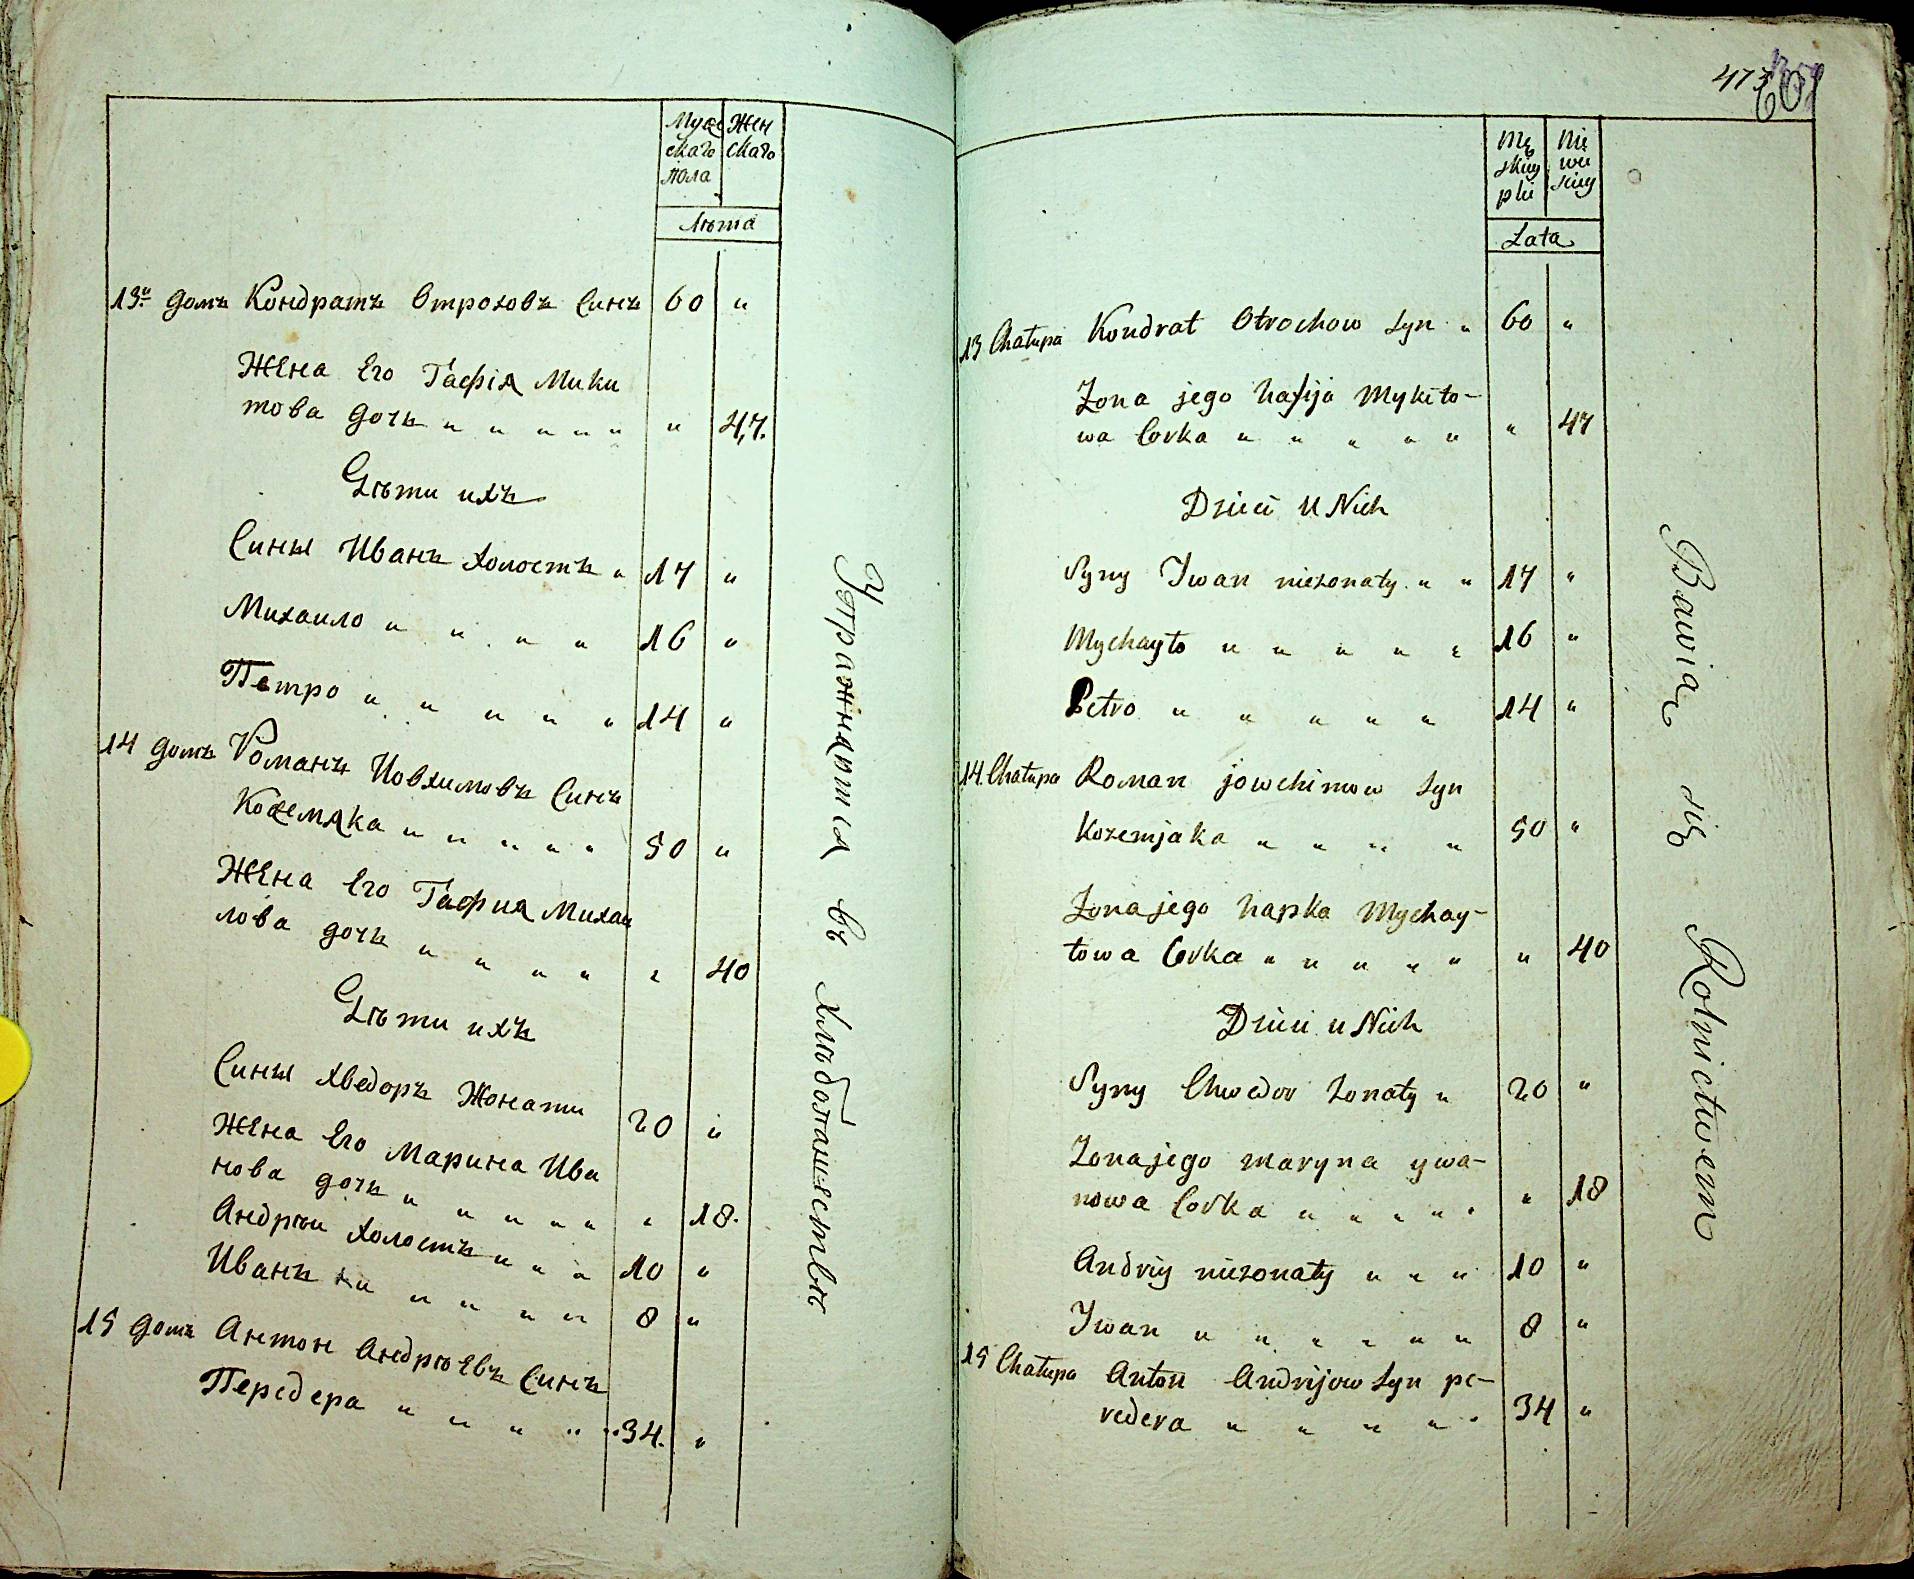 Муже Жен
скаго скаго
пола
Лѣта
13й домъ Кондратъ Отроховъ Синъ 60 "
Жена Его Гафія Мики
това дочь " " " " " " 47.
Дѣти ихъ
Сины Иванъ Холостъ " 17 "
Михаило " " " " 16 "
Петро " " " " " 14 "
14 домъ Романъ Иовхимовъ Синъ
Кожемяка " " " " " 50 "
Жена Его Гафия Михаи
лова дочь " " " " " 40
Дѣти ихъ
Сины Хведоръ Жонати 20 "
Жена Его Марина Ива
нова дочь " " " " " " 18.
Андрѣи Холостъ " " " 10 "
Иванъ " " " " 8 "
15 домъ Антон Андрѣевъ Синъ
Передера " " " " " 34. "
Упражняютця въ хлѣбопашествѣ
473
Mę Nie
skiey wie
płci sciey
Lata
13 Chałupa Kondrat Otrochow syn " 60 "
Zona jego hafija Mykito-
wa Corka " " " " " " 47
Dzieci u Nich
Syny Iwan niezonaty " " 17 "
Mychayło " " " " " 16 "
Petro " " " " " 14 "
14 Chałupa Roman jowchimow syn
Kozemjaka " " " " 50 "
Zona jego hapka Mychay-
łowa Corka " " " " " " 40
Dzieci u Nich
Syny Chwedor zonaty " 20 "
Zona jego maryna ywa-
nowa Corka " " " " " " 18
Andriy niezonaty " " " 10 "
Iwan " " " " " " 8 "
15 Chałupa Anton Andrijow syn pe-
redera " " " " " 34 "
Bawią się Rolnictwem